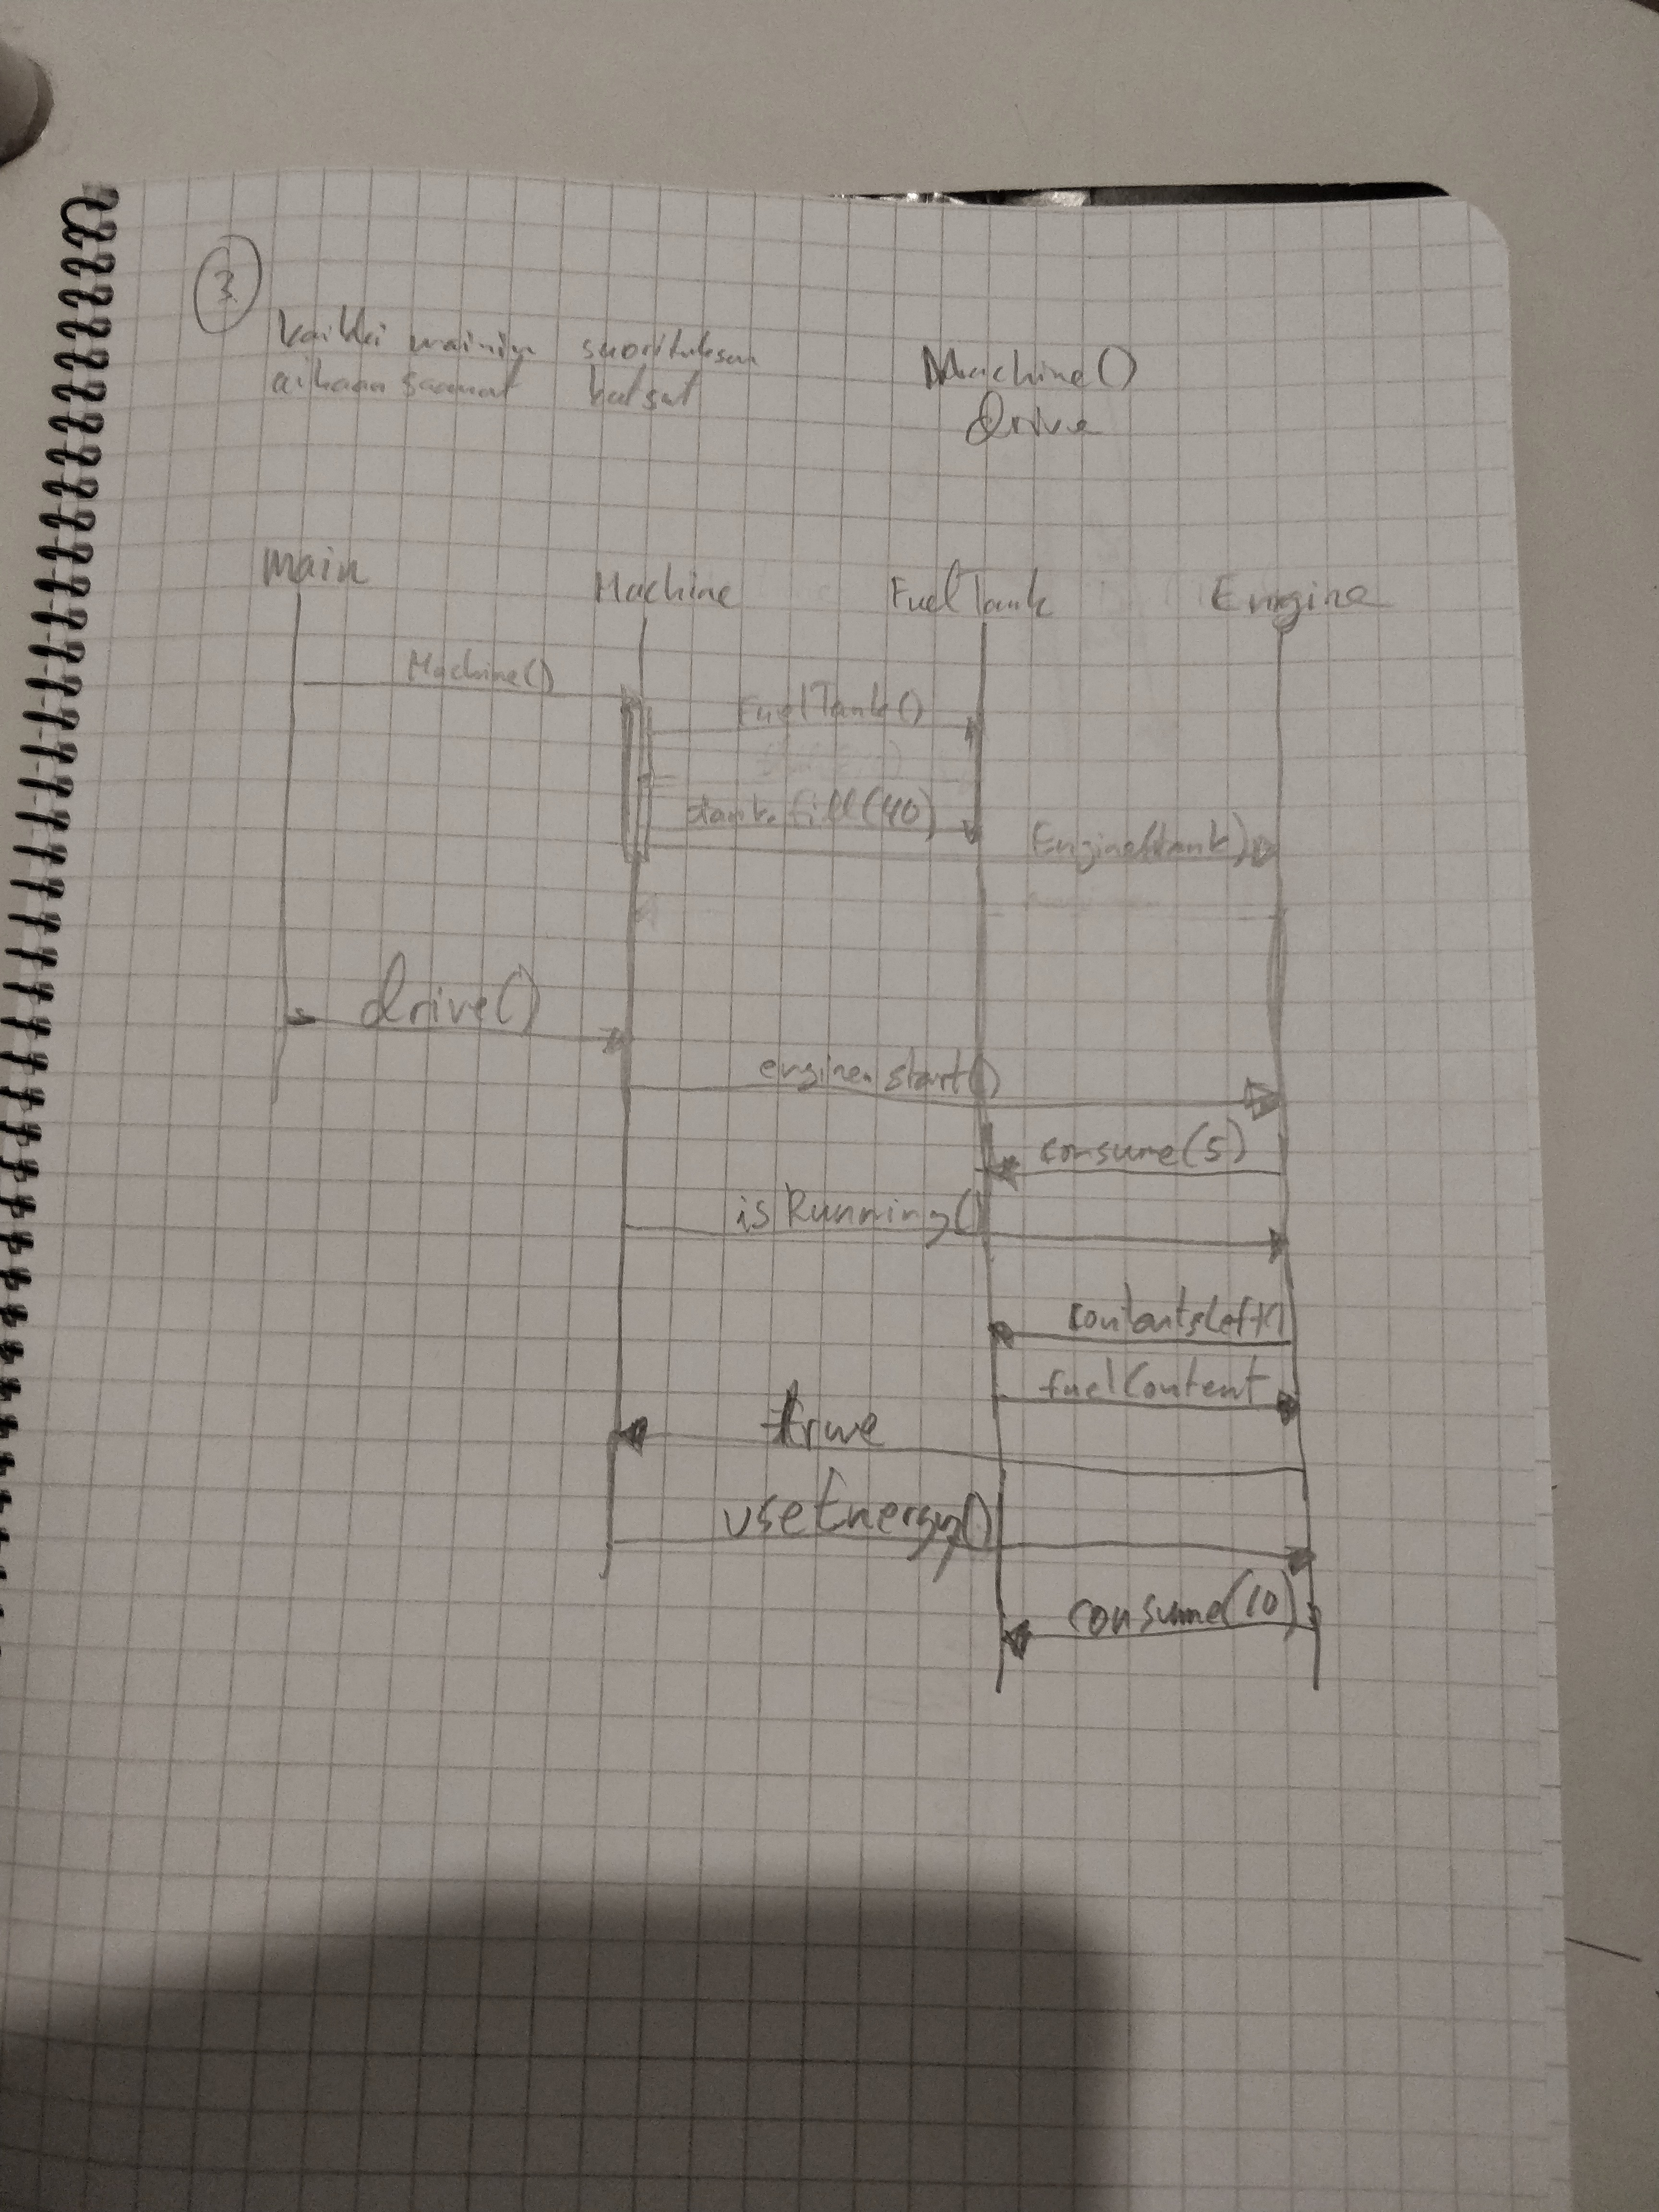 3
kaikki mainin suorituksen
aikaan saamat kutsut
Machine()
drive
main
Machine
FuelTank
Engine
Machine()
FuelTank()
tank.fill(40)
Engine(tank)
drive()
engine.start()
consume(5)
isRunning()
contentsLeft()
fuelContent
true
useEnergy()
consume(10)